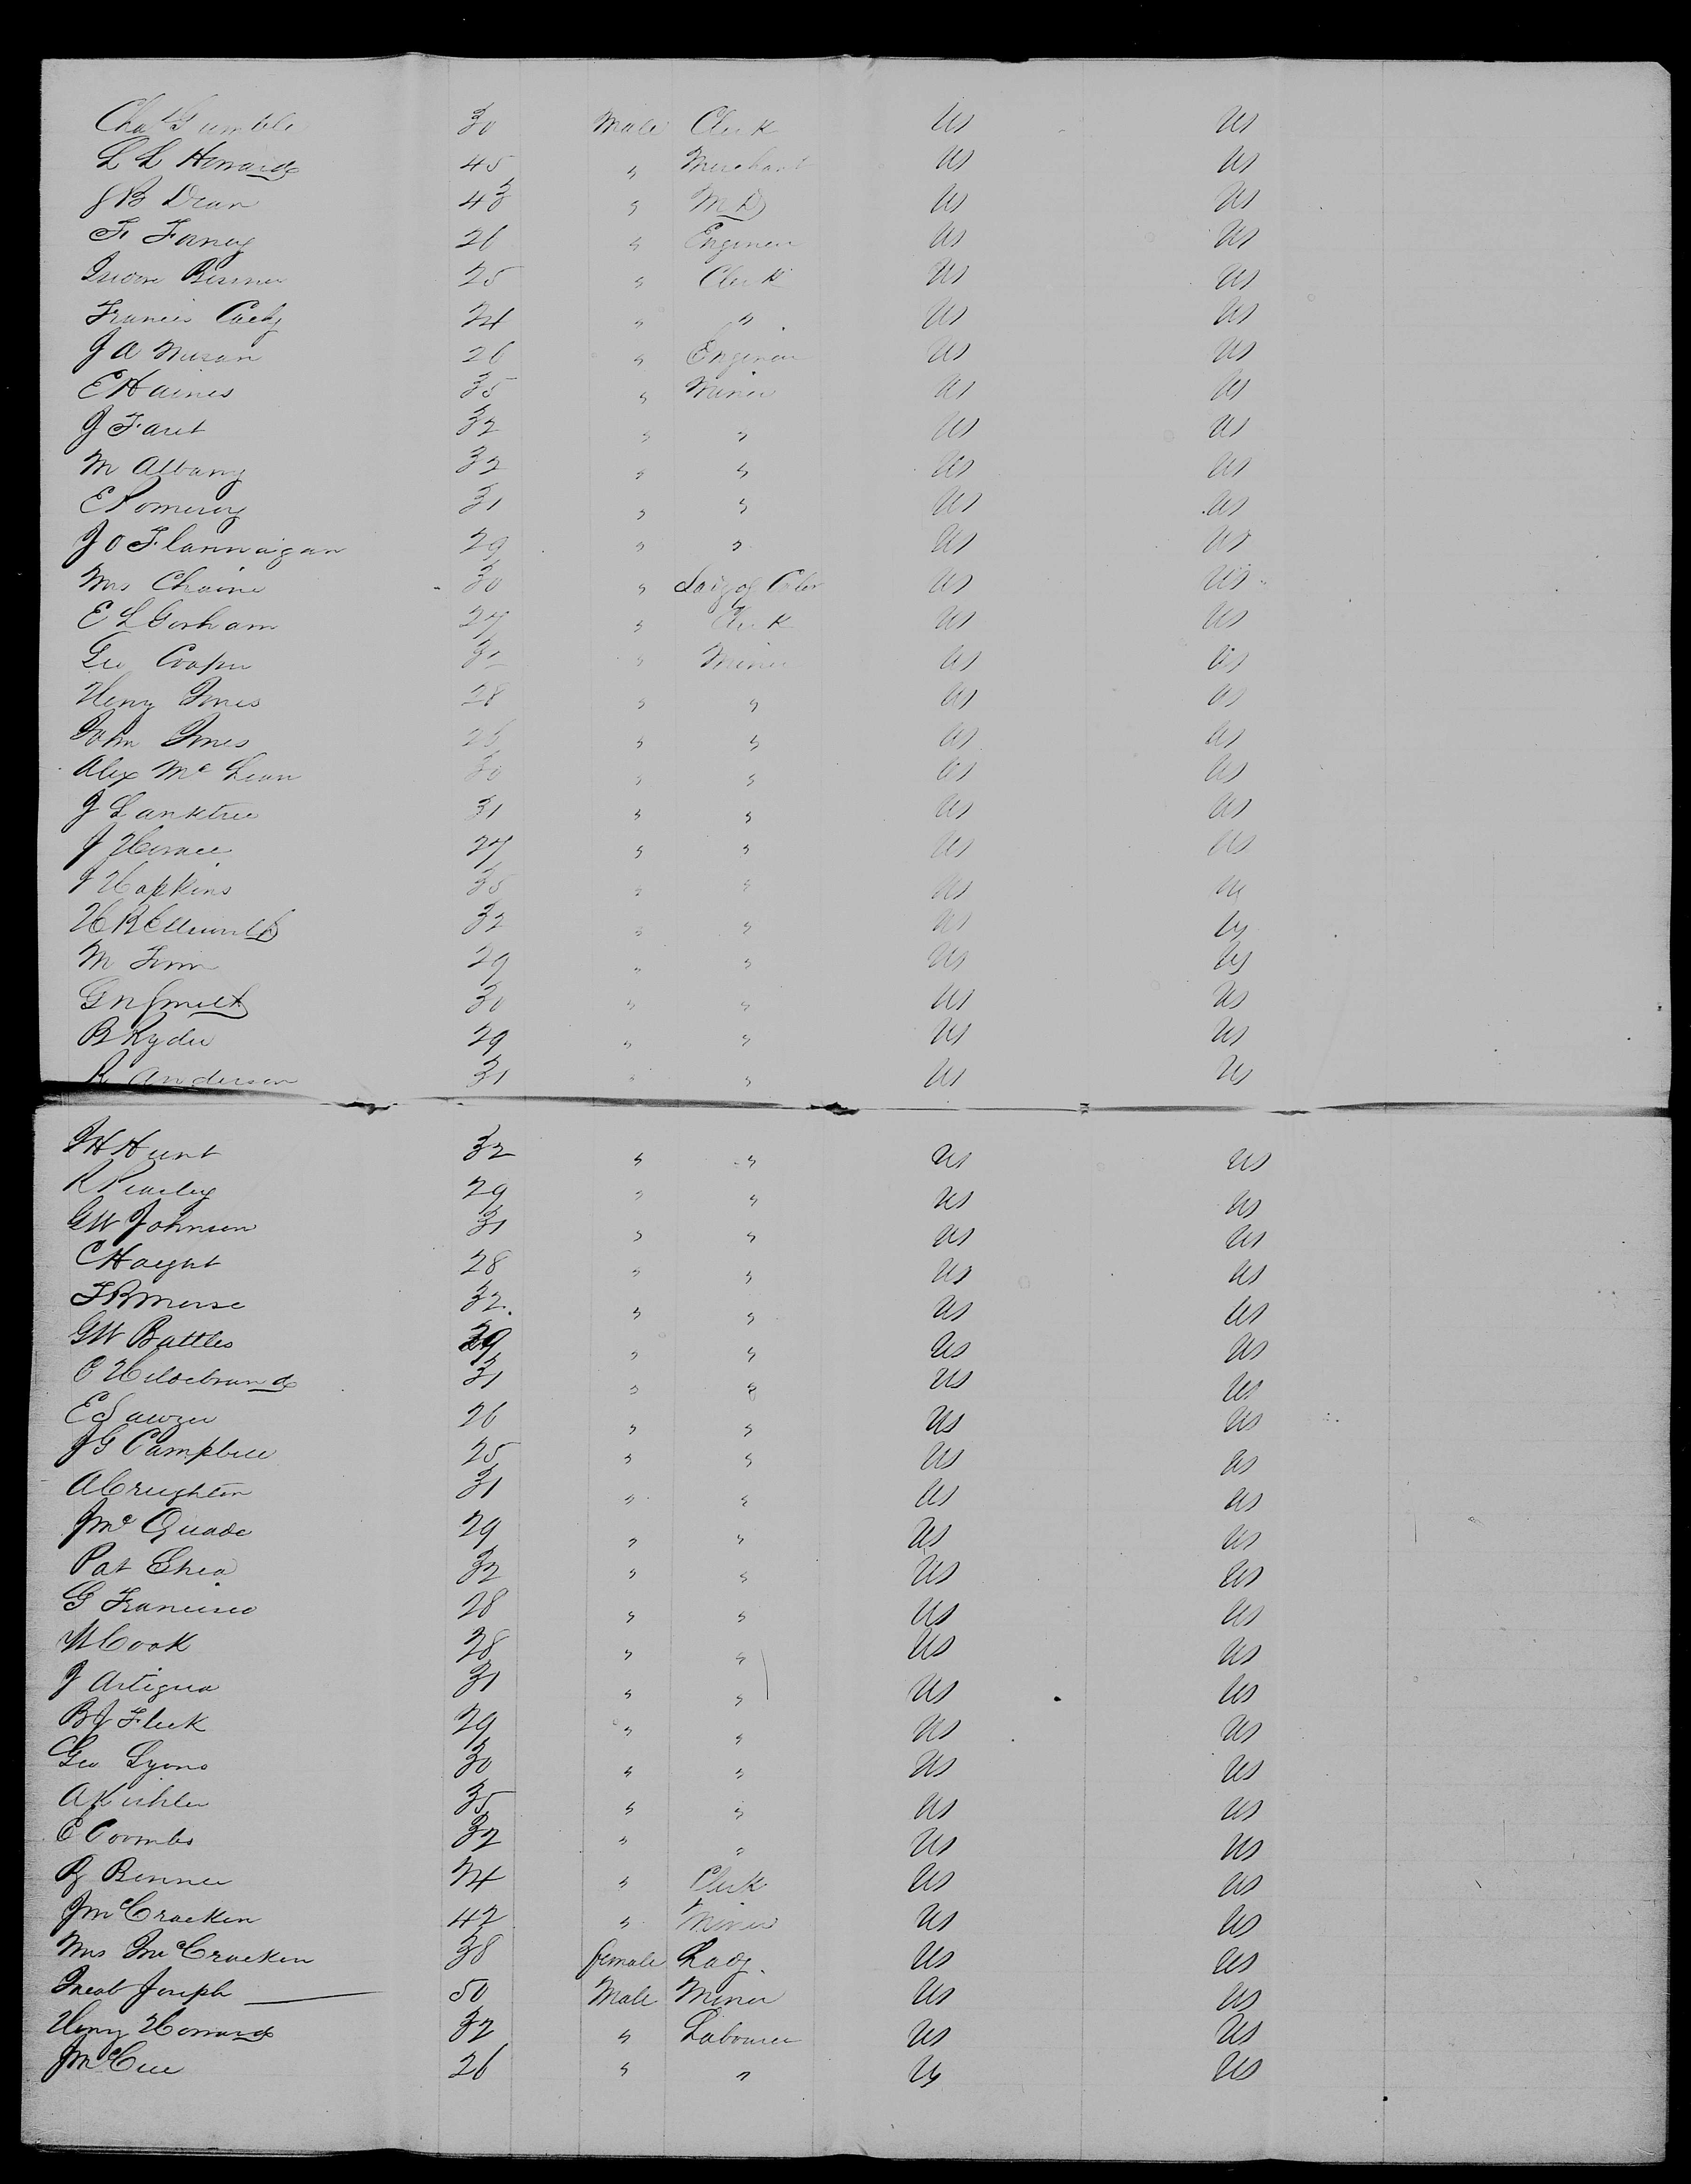 Chas Gumble 30 Male Clerk US US
L L Howard 45 " Merchant US US
J B Dean 43 " M D US US
F Forney 26 " Engineer US US
Isidore 25 " Clerk US US
Francis Cady 24 " " US US
J A 26 " Engineer US US
E Haines 35 " Miner US US
J Faret 32 " " US US
M Albany 32 " " US US
E Pomeroy 31 " " US US
J O Flannagan 29 " " US US
Mrs 30 " US US
E L Gorham 27 " Clerk US US
Geo Cooper 31 " Miner US US
Heny Jones 28 " " US US
John Jones " " US US
Alex Mc Lean 30 " " US US
J Lanktree 31 " " US US
J Horace 27 " " US US
J Hopkins 35 " " US US
H R 32 " " US US
M Finn 29 " " US US
G N Smith 30 " " US US
B Ryder 29 " " US US
R Anderson 31 " " US US
J H Hunt 32 " " US US
R 29 " " US US
G W Johnson 31 " " US US
C Haight 28 " " US US
F B Morse 32 " " US US
G W Battles 29 " " US US
C Hildebrand 31 " " US US
E Sawzer 26 " " US US
J G Campbell 25 " " US US
A Creighton 31 " " US US
J Mc Quade 29 " " US US
Pat Shea 32 " " US US
G Francisco 28 " " US US
W Cook 28 " " US US
J Artigua 31 " " US US
B J Fleek 29 " " US US
Geo Lyons 30 " " US US
A Kichler 35 " " US US
C Coombs 32 " " US US
B Benner 24 " Clerk US US
J Mc Cracken 42 " Miner US US
Mrs J Mc Cracken 38 female Lady US US
Joseph 50 Male Miner US US
Heny Howard 32 " Labourer US US
J Mc Cue 26 " " US US